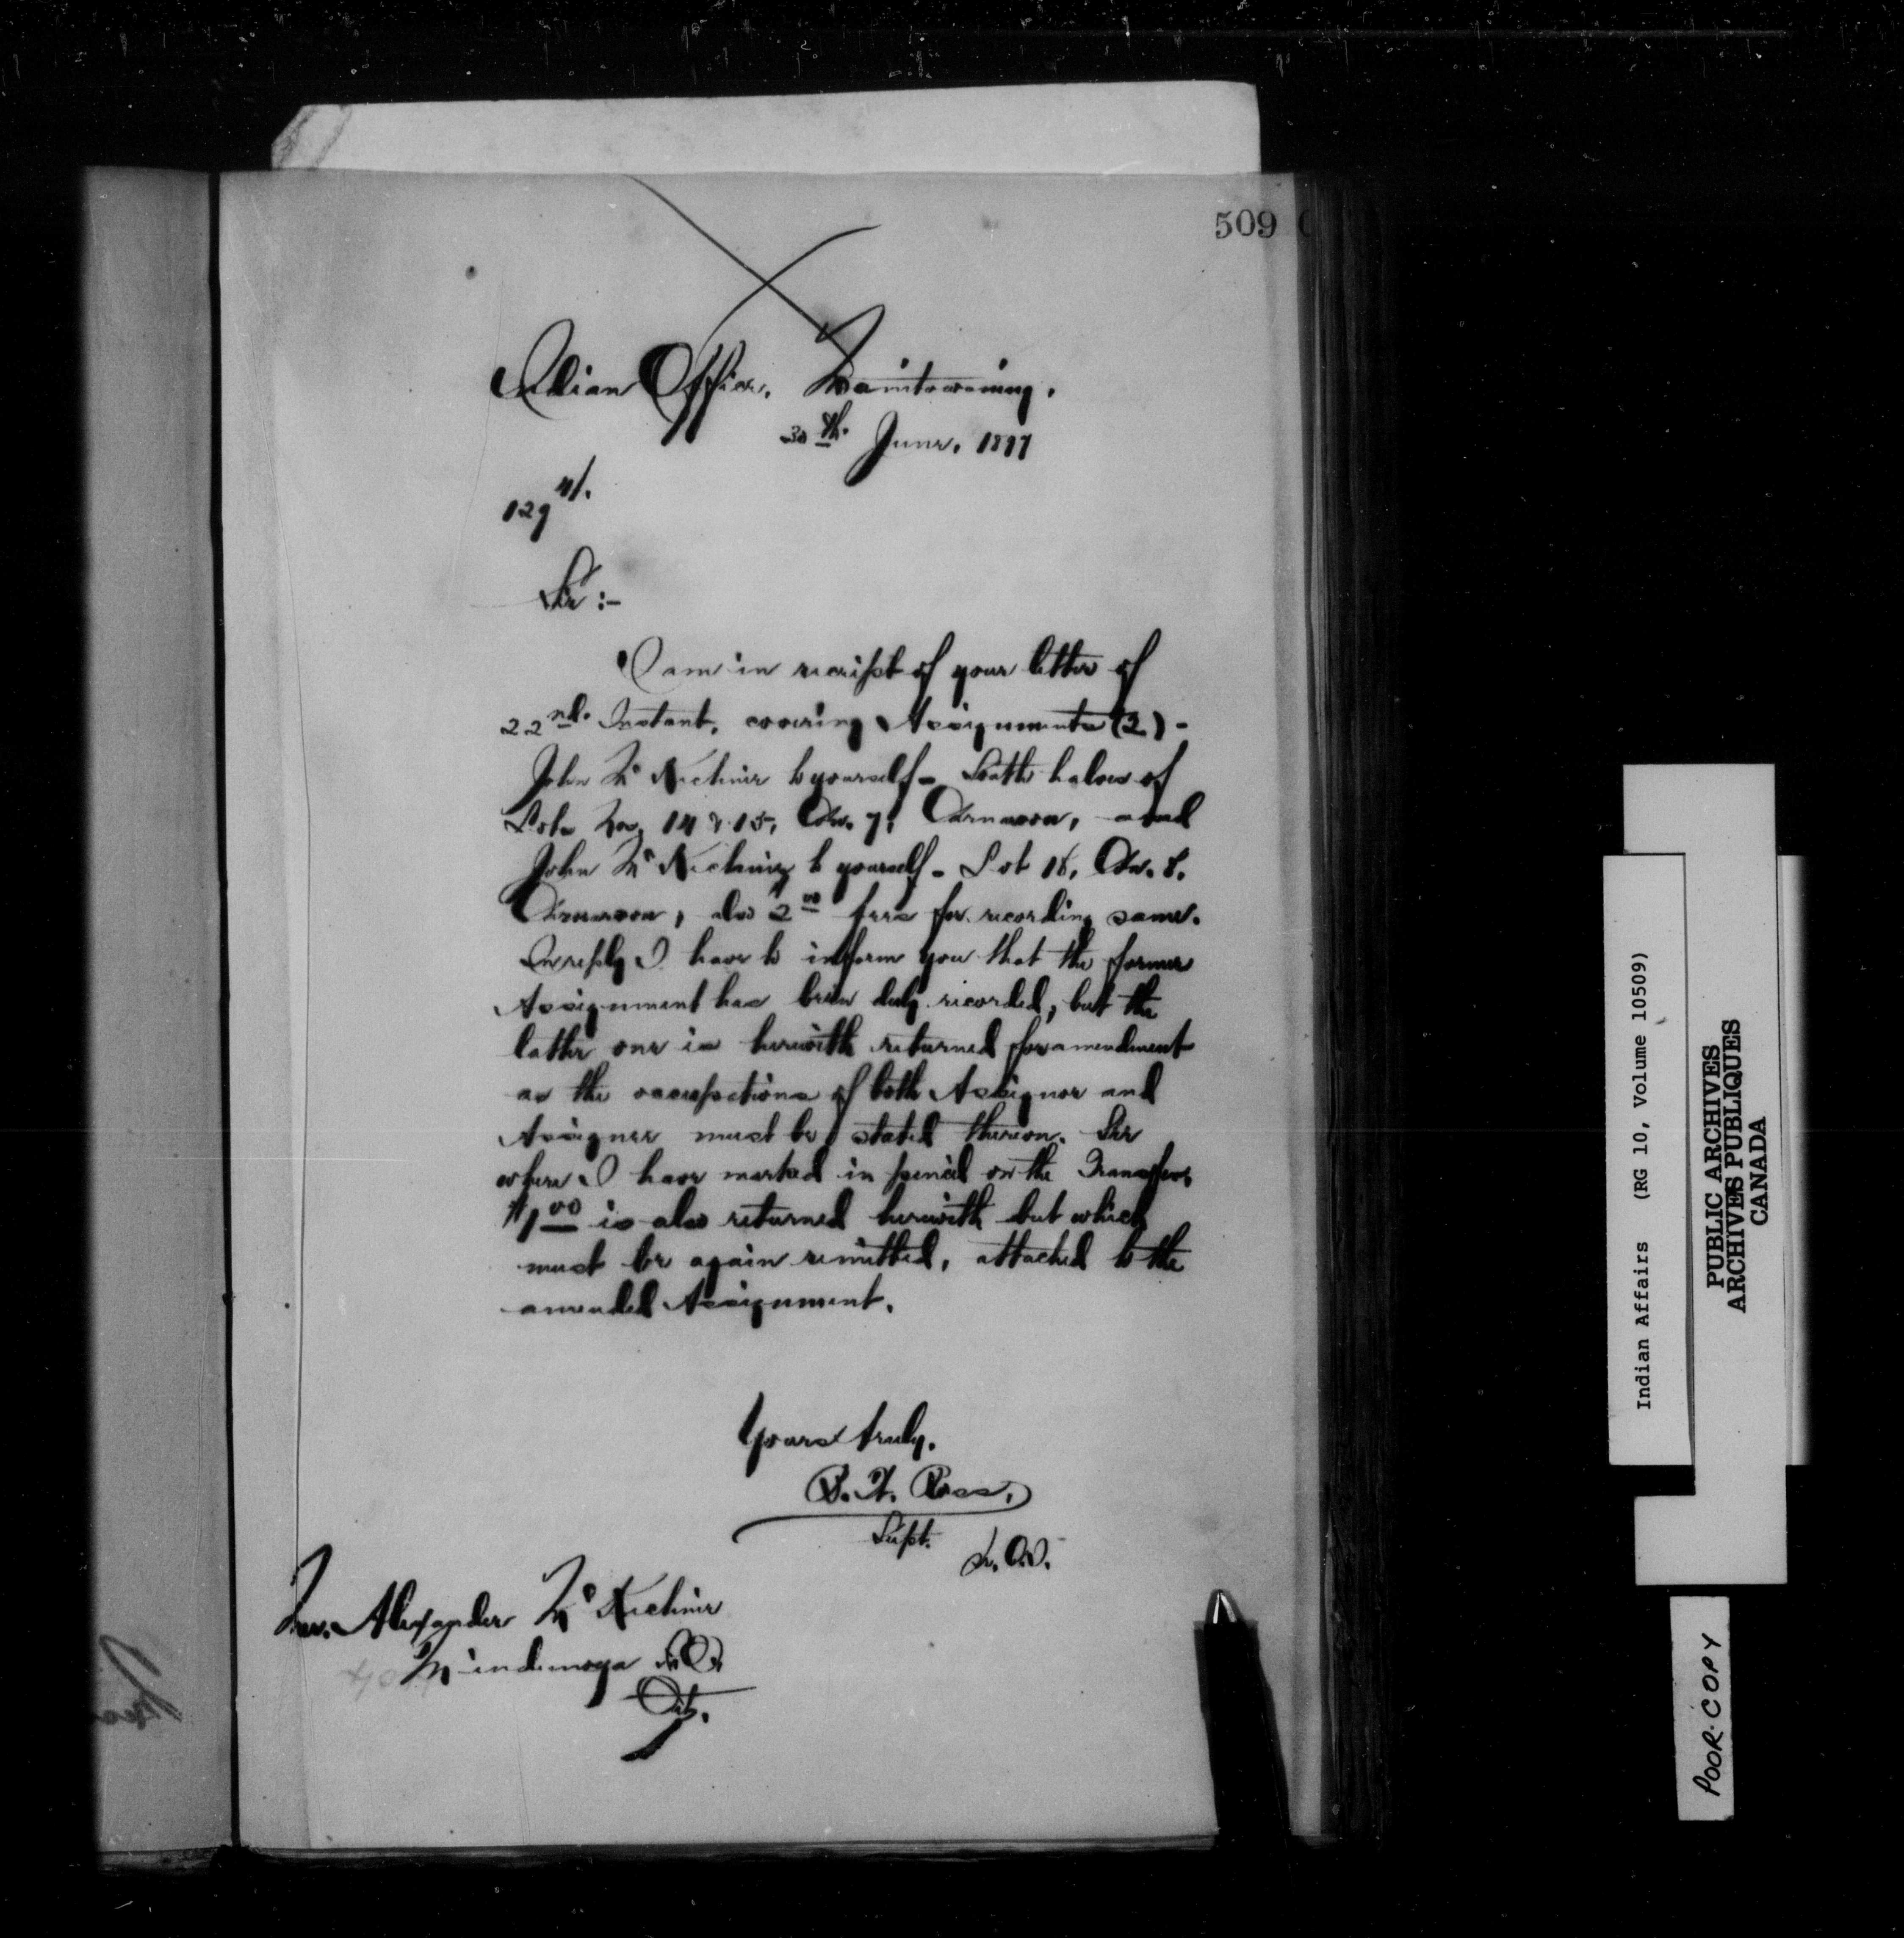 509
Indian Office, Manitowaning,
30th. June, 1897
129
Sir :-
I am in receipt of your letter of
22nd. Instant, covering Assignments (2) -
John Mc Kechnie to yourself - South halves of
Lots Nos. 14 & 15, Con. 7, Carnarvon, and
John Mc Kechnie to yourself - Lot 16, Con. 8.
Carnarvon, also 2 00 fees for recording same.
In reply I have to inform you that the former
Assignment has been duly recorded, but the
latter one is herewith returned for amendment
as the occupations of both Assignor and
Assignee must be stated thereon. See
where I have marked in pencil on the Transfer,
$1 00 is also returned herewith but which
must be again remitted, attached to the
amended Assignment.
Yours truly,
B. W. Ross,
Supt.
Alexander Mc Kechnie
Mindemoya P.O.
Ont.
Indian Affairs (RG 10, Volume 10509)
PUBLIC ARCHIVES
ARCHIVES PUBLIQUES
CANADA
POOR COPY